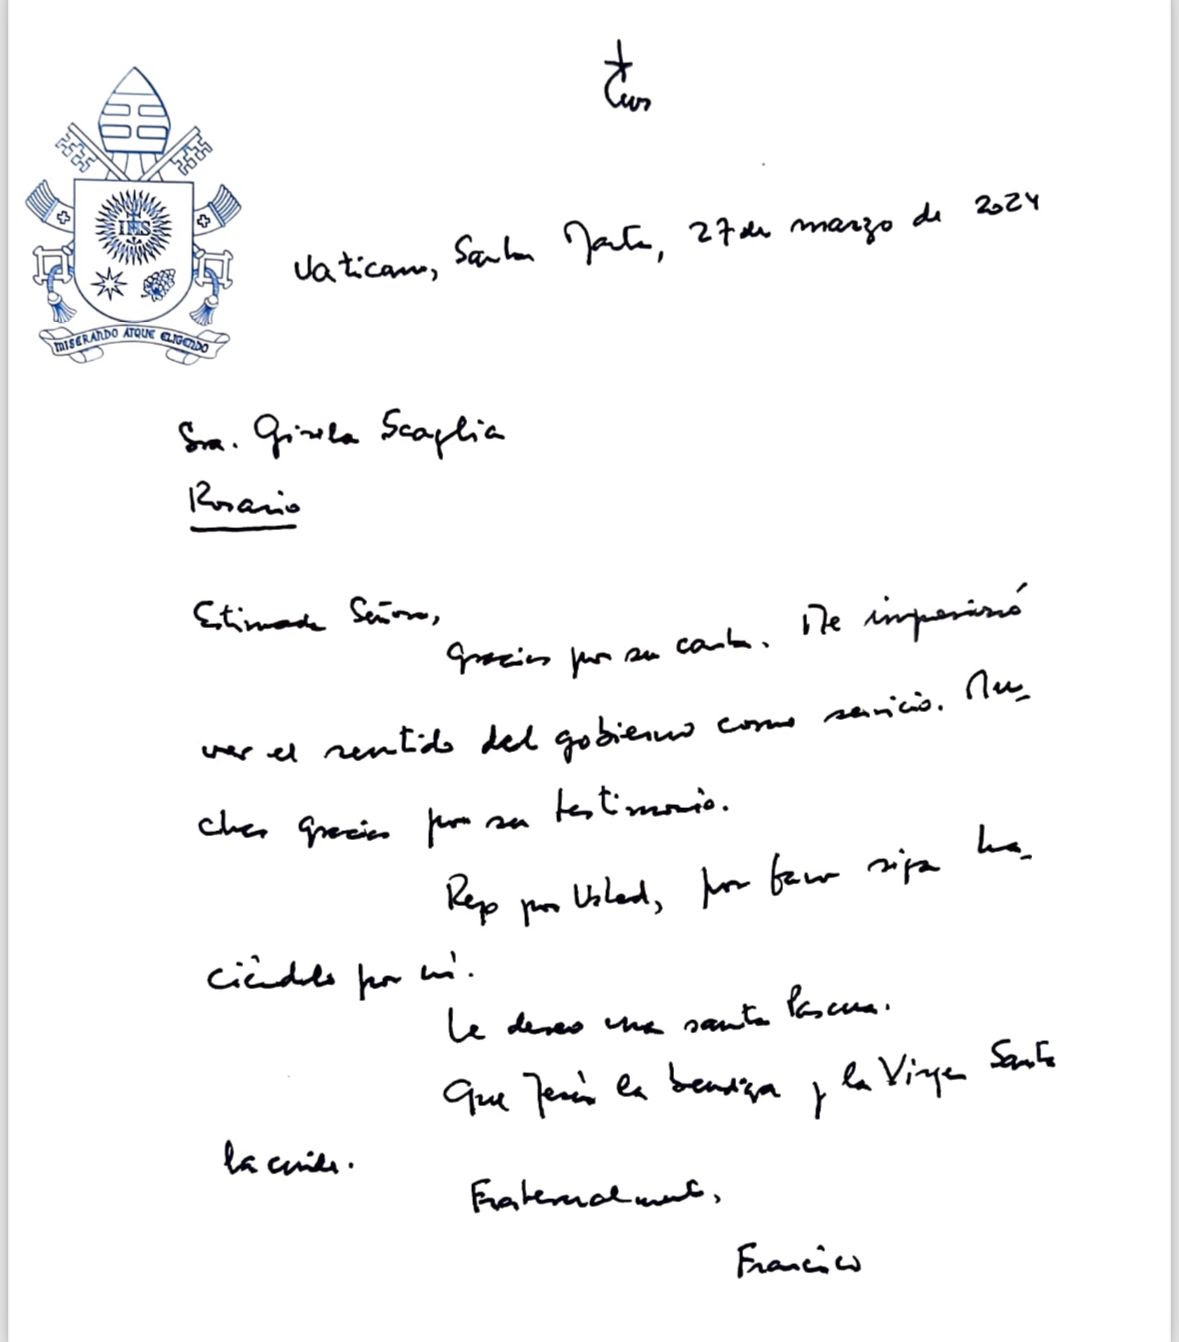 MISERANDO ATQUE ELIGENDO
IHS
Vaticano, Santa Marta, 27 de marzo de 2024
Sra. Gisela Scaglia
Rosario
Estimada Señora,
gracias por su carta. Me impresionó
ver el sentido del gobierno como servicio. Mu-
chas gracias por su testimonio.
Rezo por Usted, por favor siga ha-
ciéndolo por mí.
Le deseo una santa Pascua.
Que Jesús la bendiga y la Virgen Santa
la cuide.
Fraternalmente,
Francisco